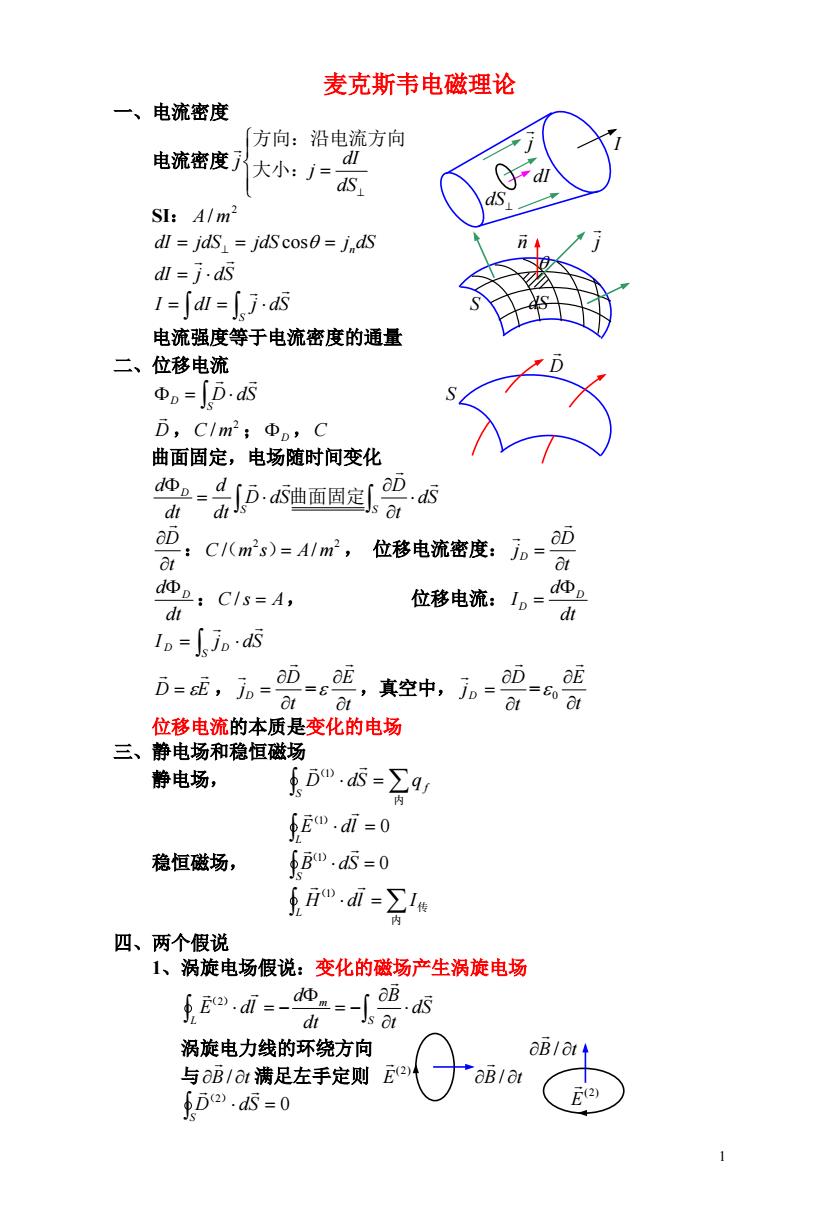 麦克斯韦电磁理论
一、电流密度
电流密度 $\vec{j}\begin{cases}方向：沿电流方向\\大小：j=\dfrac{dI}{dS_\perp}\end{cases}$
$\vec{j}$ $I$ $dI$ $dS_\perp$
SI： $A/m^2$
$dI = jdS_\perp = jdS\cos\theta = j_n dS$
$dI = \vec{j}\cdot d\vec{S}$
$I = \int dI = \int_S \vec{j}\cdot d\vec{S}$
$\vec{n}$ $\vec{j}$ $\theta$ $S$ $dS$
电流强度等于电流密度的通量
二、位移电流
$\Phi_D = \int_S \vec{D}\cdot d\vec{S}$
$\vec{D}$ $S$
$\vec{D}$，$C/m^2$；$\Phi_D$，$C$
曲面固定，电场随时间变化
$\dfrac{d\Phi_D}{dt} = \dfrac{d}{dt}\int_S \vec{D}\cdot d\vec{S}\underline{\underline{曲面固定}}\int_S \dfrac{\partial\vec{D}}{\partial t}\cdot d\vec{S}$
$\dfrac{\partial\vec{D}}{\partial t}$：$C/（m^2s）= A/m^2$， 位移电流密度：$\vec{j}_D = \dfrac{\partial\vec{D}}{\partial t}$
$\dfrac{d\Phi_D}{dt}$：$C/s = A$， 位移电流：$I_D = \dfrac{d\Phi_D}{dt}$
$I_D = \int_S \vec{j}_D\cdot d\vec{S}$
$\vec{D} = \varepsilon\vec{E}$，$\vec{j}_D = \dfrac{\partial\vec{D}}{\partial t} = \varepsilon\dfrac{\partial\vec{E}}{\partial t}$，真空中，$\vec{j}_D = \dfrac{\partial\vec{D}}{\partial t} = \varepsilon_0\dfrac{\partial\vec{E}}{\partial t}$
位移电流的本质是变化的电场
三、静电场和稳恒磁场
静电场， $\oint_S \vec{D}^{(1)}\cdot d\vec{S} = \sum_{内} q_f$
$\oint_L \vec{E}^{(1)}\cdot d\vec{l} = 0$
稳恒磁场， $\oint_S \vec{B}^{(1)}\cdot d\vec{S} = 0$
$\oint_L \vec{H}^{(1)}\cdot d\vec{l} = \sum_{内} I_{传}$
四、两个假说
1、涡旋电场假说：变化的磁场产生涡旋电场
$\oint_L \vec{E}^{(2)}\cdot d\vec{l} = -\dfrac{d\Phi_m}{dt} = -\int_S \dfrac{\partial\vec{B}}{\partial t}\cdot d\vec{S}$
涡旋电力线的环绕方向
与 $\partial\vec{B}/\partial t$ 满足左手定则
$\vec{E}^{(2)}$ $\partial\vec{B}/\partial t$
$\partial\vec{B}/\partial t$ $\vec{E}^{(2)}$
$\oint_S \vec{D}^{(2)}\cdot d\vec{S} = 0$
1